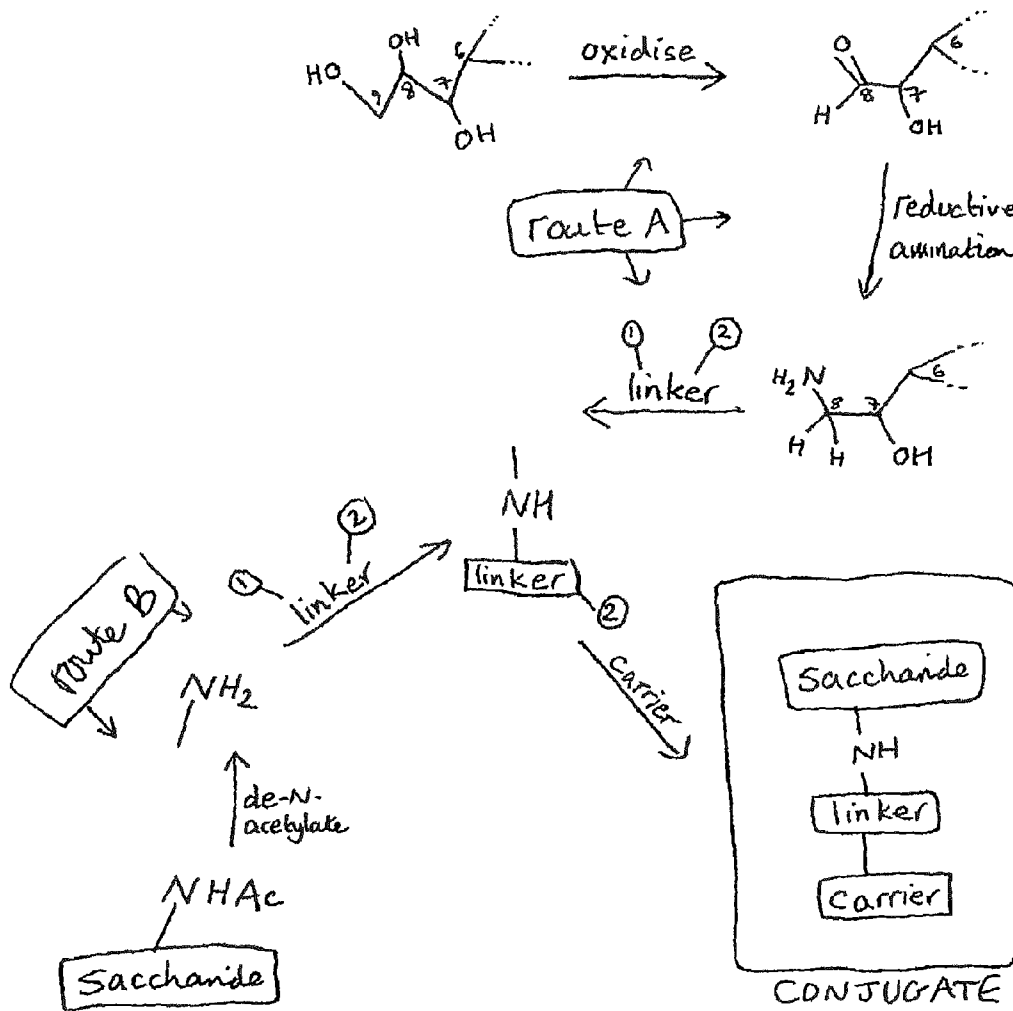 OH
HO
9
8
7
6
OH
oxidise
O
H
8
7
6
OH
route A
reductive
amination
1
2
linker
H2N
8
7
6
H
H
OH
NH
linker
2
route B
1
2
linker
NH2
de-N-
acetylate
NHAc
Saccharide
carrier
Saccharide
NH
linker
Carrier
CONJUGATE